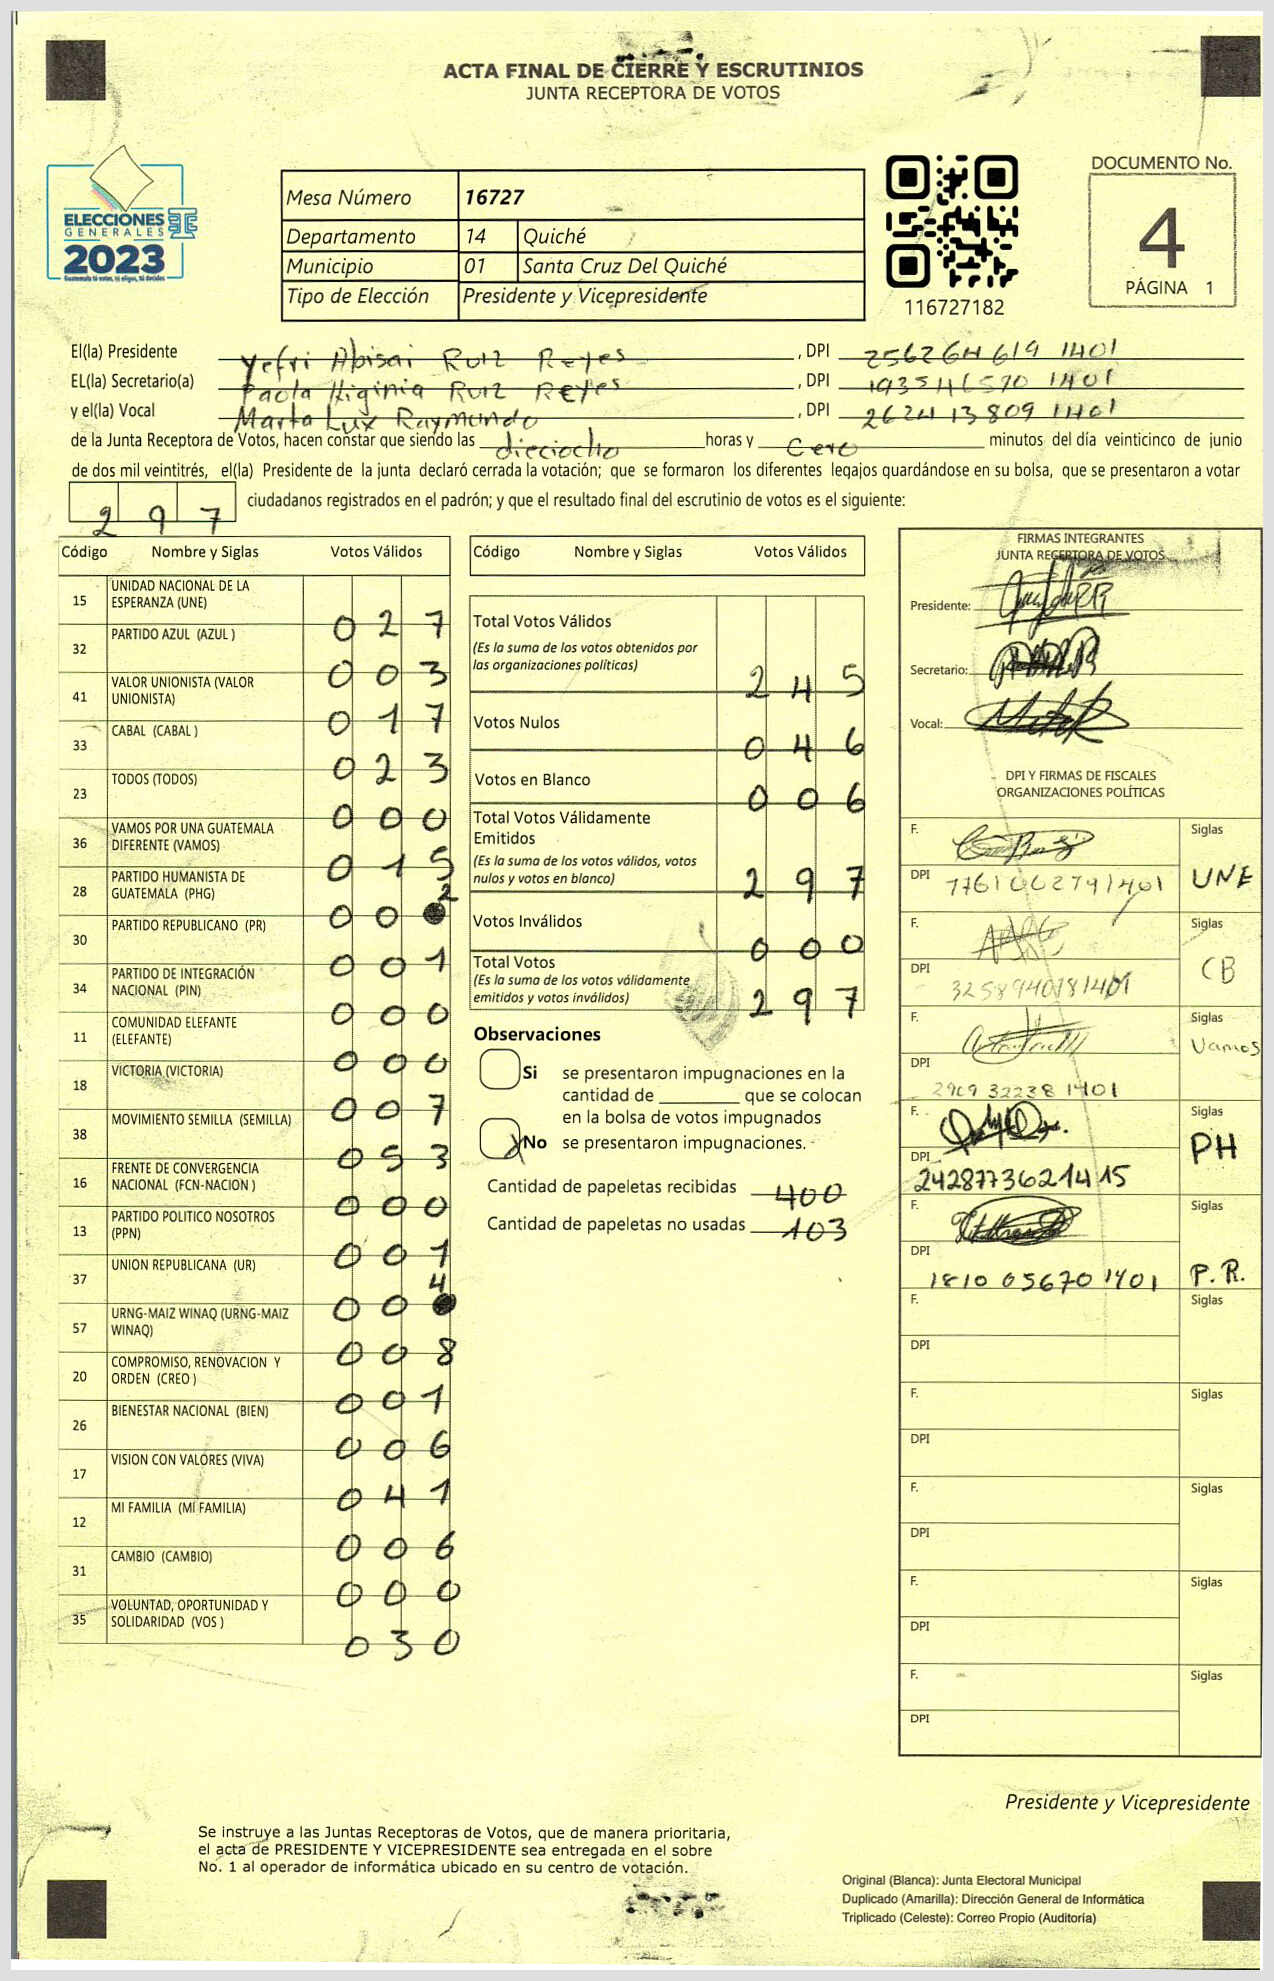 ACTA FINAL DE CIERRE Y ESCRUTINIOS
JUNTA RECEPTORA DE VOTOS
ELECCIONES
GENERALES
2023
Guatemala tú votas, tú eliges, tú decides
Mesa Número 16727
Departamento 14 Quiché
Municipio 01 Santa Cruz Del Quiché
Tipo de Elección Presidente y Vicepresidente
116727182
DOCUMENTO No.
4
PÁGINA 1
El(la) Presidente Yefri Abisai Ruiz Reyes , DPI 256264619 1401
EL(la) Secretario(a) Paola Higinia Ruiz Reyes , DPI 193546570 1401
y el(la) Vocal Marta Lux Raymundo , DPI 262413809 1401
de la Junta Receptora de Votos, hacen constar que siendo las dieciocho horas y Cero minutos del día veinticinco de junio
de dos mil veintitrés, el(la) Presidente de la junta declaró cerrada la votación; que se formaron los diferentes legajos guardándose en su bolsa, que se presentaron a votar
297 ciudadanos registrados en el padrón; y que el resultado final del escrutinio de votos es el siguiente:
Código Nombre y Siglas Votos Válidos
15 UNIDAD NACIONAL DE LA ESPERANZA (UNE) 027
32 PARTIDO AZUL (AZUL ) 003
41 VALOR UNIONISTA (VALOR UNIONISTA) 017
33 CABAL (CABAL ) 023
23 TODOS (TODOS) 000
36 VAMOS POR UNA GUATEMALA DIFERENTE (VAMOS) 015
28 PARTIDO HUMANISTA DE GUATEMALA (PHG) 002
30 PARTIDO REPUBLICANO (PR) 001
34 PARTIDO DE INTEGRACIÓN NACIONAL (PIN) 000
11 COMUNIDAD ELEFANTE (ELEFANTE) 000
18 VICTORIA (VICTORIA) 007
38 MOVIMIENTO SEMILLA (SEMILLA) 053
16 FRENTE DE CONVERGENCIA NACIONAL (FCN-NACION ) 000
13 PARTIDO POLITICO NOSOTROS (PPN) 001
37 UNION REPUBLICANA (UR) 004
57 URNG-MAIZ WINAQ (URNG-MAIZ WINAQ) 008
20 COMPROMISO, RENOVACION Y ORDEN (CREO ) 001
26 BIENESTAR NACIONAL (BIEN) 006
17 VISION CON VALORES (VIVA) 041
12 MI FAMILIA (MI FAMILIA) 006
31 CAMBIO (CAMBIO) 000
35 VOLUNTAD, OPORTUNIDAD Y SOLIDARIDAD (VOS ) 030
Código Nombre y Siglas Votos Válidos
Total Votos Válidos
(Es la suma de los votos obtenidos por
las organizaciones políticas) 245
Votos Nulos 046
Votos en Blanco 006
Total Votos Válidamente
Emitidos
(Es la suma de los votos válidos, votos
nulos y votos en blanco) 297
Votos Inválidos 000
Total Votos
(Es la suma de los votos válidamente
emitidos y votos inválidos) 297
Observaciones
Si se presentaron impugnaciones en la
cantidad de ________ que se colocan
en la bolsa de votos impugnados
X No se presentaron impugnaciones.
Cantidad de papeletas recibidas 400
Cantidad de papeletas no usadas 103
FIRMAS INTEGRANTES
JUNTA RECEPTORA DE VOTOS
Presidente:
Secretario:
Vocal:
DPI Y FIRMAS DE FISCALES
ORGANIZACIONES POLÍTICAS
F. Siglas
DPI 7761062791401 UNE
F. Siglas
DPI 3258940181401 CB
F. Siglas
DPI 2969 32238 1401 Vamos
F. Siglas
DPI 2428773621415 PH
F. Siglas
DPI 1810 05670 1401 P.R.
F. Siglas
DPI
F. Siglas
DPI
F. Siglas
DPI
F. Siglas
DPI
F. Siglas
DPI
Presidente y Vicepresidente
Se instruye a las Juntas Receptoras de Votos, que de manera prioritaria,
el acta de PRESIDENTE Y VICEPRESIDENTE sea entregada en el sobre
No. 1 al operador de informática ubicado en su centro de votación.
Original (Blanca): Junta Electoral Municipal
Duplicado (Amarilla): Dirección General de Informática
Triplicado (Celeste): Correo Propio (Auditoría)